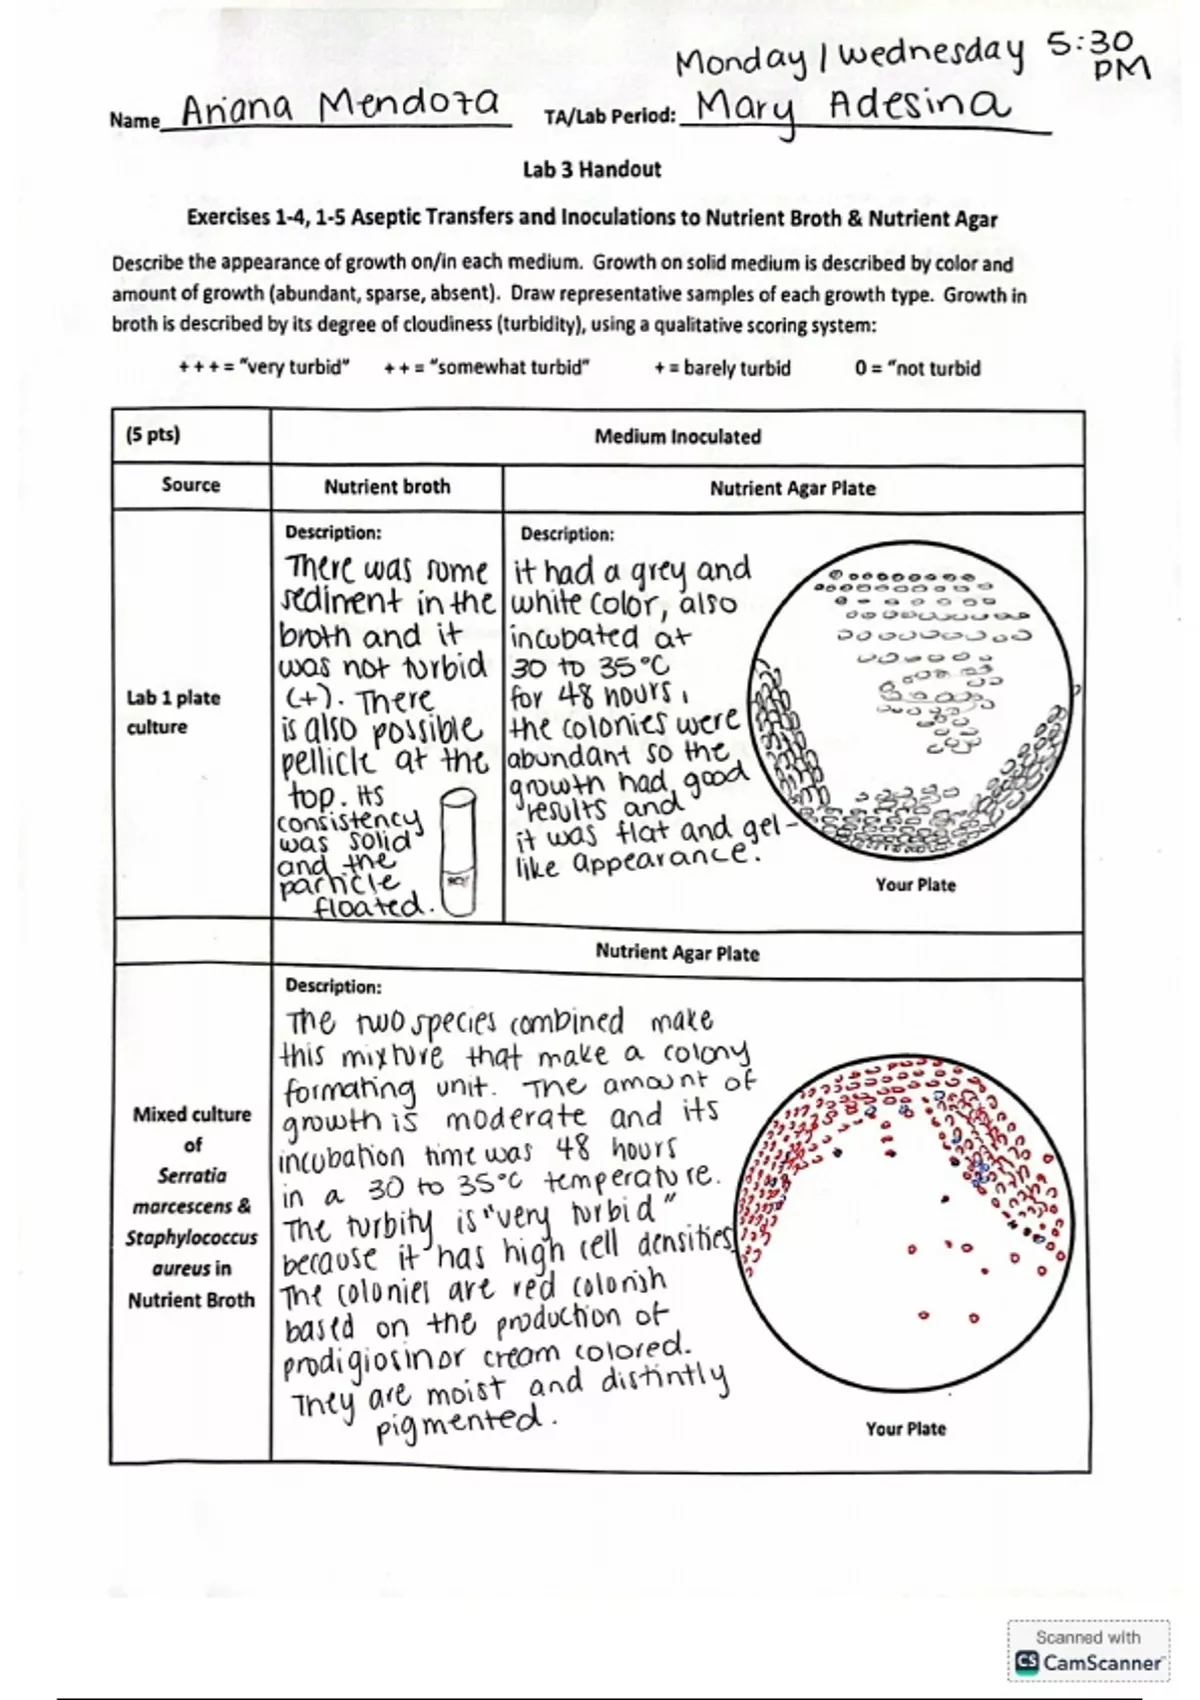 Monday / Wednesday 5:30 PM
Name Ariana Mendoza TA/Lab Period: Mary Adesina
Lab 3 Handout
Exercises 1-4, 1-5 Aseptic Transfers and Inoculations to Nutrient Broth & Nutrient Agar
Describe the appearance of growth on/in each medium. Growth on solid medium is described by color and
amount of growth (abundant, sparse, absent). Draw representative samples of each growth type. Growth in
broth is described by its degree of cloudiness (turbidity), using a qualitative scoring system:
+ + + = "very turbid" + + = "somewhat turbid" + = barely turbid 0 = "not turbid
(5 pts)
Medium Inoculated
Source
Nutrient broth
Nutrient Agar Plate
Lab 1 plate
culture
Description:
There was some
sediment in the
broth and it
was not turbid
(+). There
is also possible
pellicle at the
top. Its
consistency
was solid
and the
particle
floated.
Description:
it had a grey and
white color, also
incubated at
30 to 35°C
for 48 hours,
the colonies were
abundant so the
growth had good
results and
it was flat and gel-
like appearance.
Your Plate
Nutrient Agar Plate
Mixed culture
of
Serratia
marcescens &
Staphylococcus
aureus in
Nutrient Broth
Description:
The two species combined make
this mixture that make a colony
formating unit. The amount of
growth is moderate and its
incubation time was 48 hours
in a 30 to 35°C temperature.
The turbity is "very turbid"
because it has high cell densities
The colonies are red colorish
based on the production of
prodigiosin or cream colored.
They are moist and distintly
pigmented.
Your Plate
Scanned with
CS CamScanner